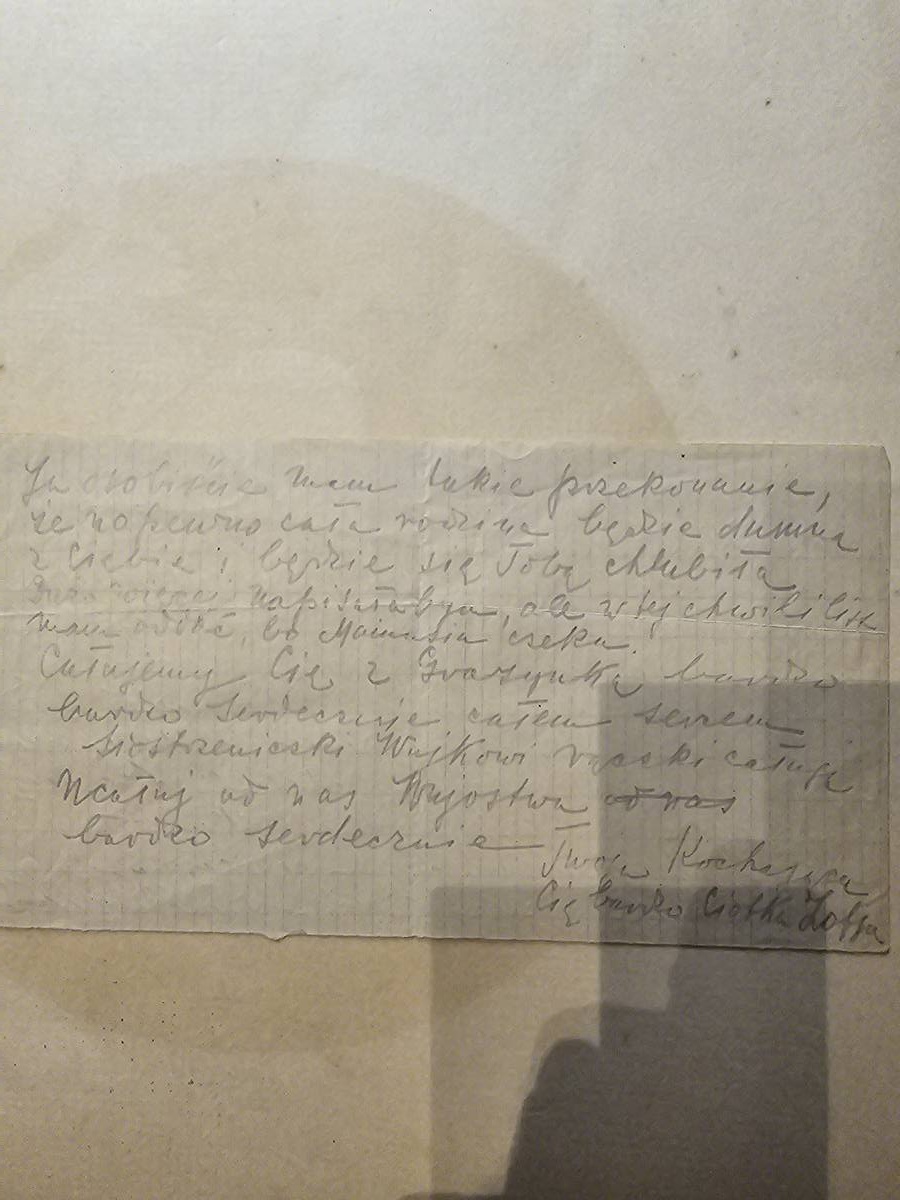 Ja osobiście mam takie przekonanie,
że napewno cała rodzina będzie dumna
z Ciebie i będzie się Tobą chlubiła
Dużo więcej napisałabym, ale w tej chwili list
mam oddać, bo Mamusia czeka.
Całujemy Cię z Grażynką bardzo
bardzo serdecznie całem sercem
siostrzeniczki Wujkowi rączki całują
Ucałuj od nas Wujostwa od nas
bardzo serdecznie
Twoja Kochająca
Cię bardzo Ciotka Zofja